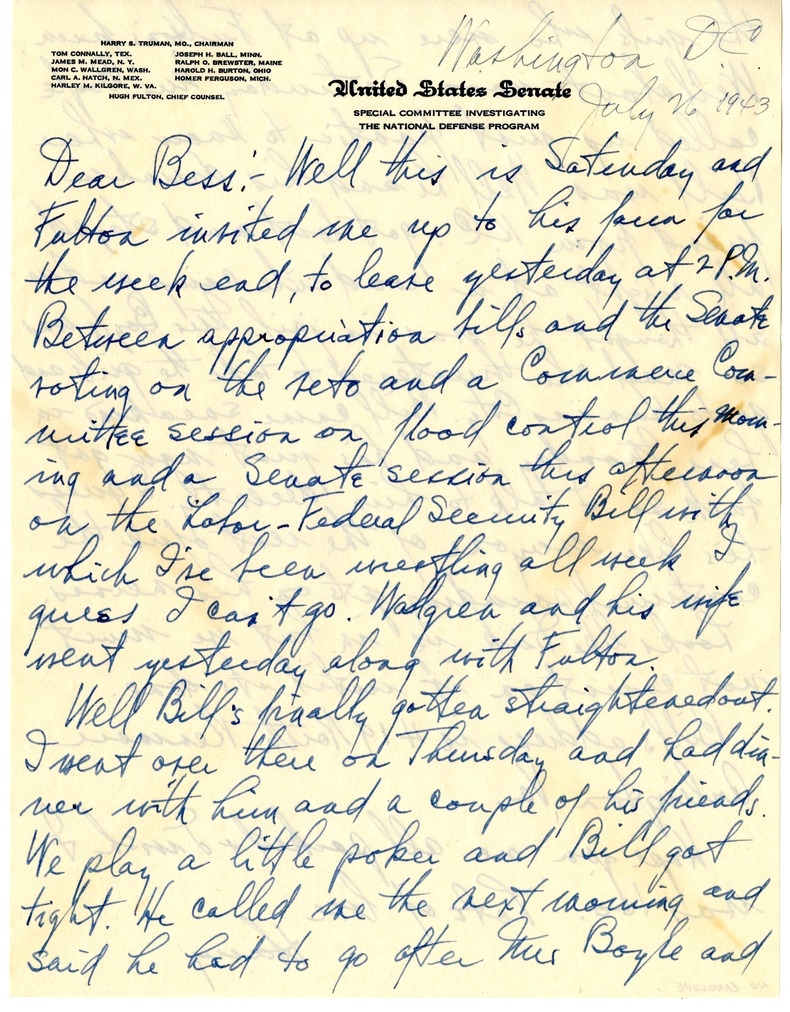 HARRY S. TRUMAN, MO., CHAIRMAN
TOM CONNALLY, TEX. JOSEPH H. BALL, MINN.
JAMES M. MEAD, N. Y. RALPH O. BREWSTER, MAINE
MON C. WALLGREN, WASH. HAROLD H. BURTON, OHIO
CARL A. HATCH, N. MEX. HOMER FERGUSON, MICH.
HARLEY M. KILGORE, W. VA.
HUGH FULTON, CHIEF COUNSEL
Washington D.C.
United States Senate
SPECIAL COMMITTEE INVESTIGATING
THE NATIONAL DEFENSE PROGRAM
July 26 1943
Dear Bess:- Well this is Saturday and
Fulton invited me up to his farm for
the week end, to leave yesterday at 2 P.M.
Between appropriation bills and the Senate
voting on the veto and a Commerce Com-
mittee session on flood control this morn-
ing and a Senate session this afternoon
on the Labor-Federal Security Bill with
which I've been wrestling all week I
guess I can't go. Wallgren and his wife
went yesterday along with Fulton.
Well Bill's finally gotten straightened out.
I went over there on Thursday and had din-
ner with him and a couple of his friends.
We play a little poker and Bill got
tight. He called me the next morning and
said he had to go after Mrs Boyle and